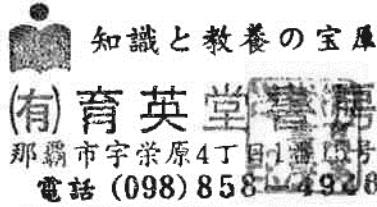 知識と教養の宝庫
㈲育英堂書房
那覇市字栄原4丁目1番 号
電話 (098) 858-49 8